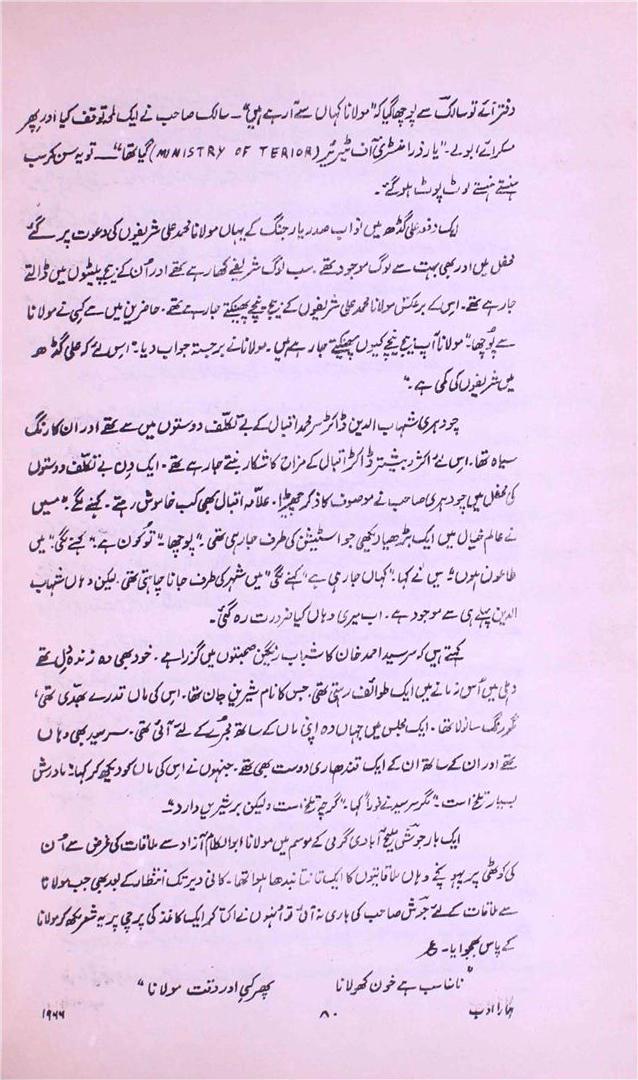 دفتر آئے تو سالک سے پوچھا گیا کہ "مولانا کہاں سے آ رہے ہیں"۔ سالک صاحب نے ایک لمحہ توقف کیا اور پھر
مسکرائے بولے۔ "یار ذرا منسٹری آف ٹیریئر (MINISTRY OF TERIOR) گیا تھا"۔ تو یہ سن کر سب
ہنستے ہنستے لوٹ پوٹ ہو گئے۔
ایک دفعہ علی گڈھ میں نواب صدر یار جنگ کے یہاں مولانا محمد علی شریفوں کی دعوت پر گئے
محفل میں اور بھی بہت سے لوگ موجود تھے۔ سب لوگ شریفے کھا رہے تھے اور اُن کے بیج پلیٹوں میں ڈالتے
جا رہے تھے۔ اس کے برعکس مولانا محمد علی شریفوں کے بیج نیچے پھینکتے جا رہے تھے۔ حاضرین میں سے کسی نے مولانا
سے پوچھا۔ "مولانا آپ بیج نیچے کیوں پھینکتے جا رہے ہیں۔ مولانا نے برجستہ جواب دیا۔ "اس لئے کہ علی گڈھ
میں شریفوں کی کمی ہے۔"
چودہری شہاب الدین ڈاکٹر سر محمد اقبال کے بے تکلف دوستوں میں سے تھے اور ان کا رنگ
سیاہ تھا۔ اس لئے اکثر و بیشتر ڈاکٹر اقبال کے مزاح کا شکار بنتے جا رہے تھے۔ ایک دن بے تکلف دوستوں
کی محفل میں چودہری صاحب نے موصوف کا ذکر چھیڑا۔ علامہ اقبال بھی کب خاموش رہتے۔ کہنے لگے۔ "میں
نے عالم خیال میں ایک بڑھیا دیکھی جو اسٹیشن کی طرف جا رہی تھی۔" پوچھا۔ "تو کون ہے"۔ کہنے لگی۔ "میں
طاعون ہوں"۔ میں نے کہا۔ "کہاں جا رہی ہے" کہنے لگی "میں شہر کی طرف جانا چاہتی تھی۔ لیکن وہاں شہاب
الدین پہلے ہی سے موجود ہے۔ اب میری وہاں کیا ضرورت رہ گئی۔
کہتے ہیں کہ سر سید احمد خان کا شباب رنگین صحبتوں میں گزرا ہے۔ خود بھی وہ زندہ دل تھے
دہلی میں اُس زمانے میں ایک طوائف رہتی تھی۔ جس کا نام شیریں جان تھا۔ اس کی ماں قدرے بھدّی تھی،
گو رنگ سانولا تھا۔ ایک مجلس میں جہاں وہ اپنی ماں کے ساتھ مجرے کے لئے آئی تھی۔ سر سید بھی وہاں
تھے اور ان کے ساتھ ان کے ایک قندھاری دوست بھی تھے۔ جنہوں نے اس کی ماں کو دیکھ کر کہا۔ "مادرش
بسیار تلخ است"۔ مگر سر سید نے فوراً کہا۔ "گرچہ تلخ است ولیکن بر شیریں دارد"۔
ایک بار جوش ملیح آبادی گرمی کے موسم میں مولانا ابوالکلام آزاد سے ملاقات کی غرض سے اُن
کی کوٹھی پر پہونچے وہاں ملاقاتیوں کا ایک تانتا بندھا ہوا تھا۔ کافی دیر تک انتظار کے بعد بھی جب مولانا
سے ملاقات کے لئے جوش صاحب کی باری نہ آئی تو اُنہوں نے اکتا کر ایک کاغذ کی پرچی پر یہ شعر لکھ کر مولانا
کے پاس بھجوایا۔ ؏
"نامناسب ہے خون کھولانا پھر کسی اور وقت مولانا"
ہمارا ادب ۸۰ ۱۹۶۶